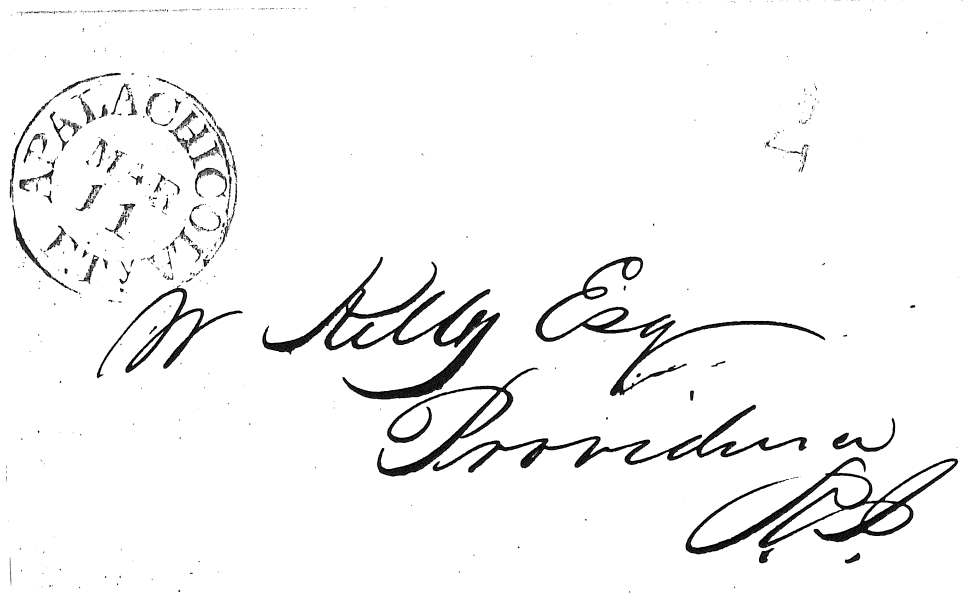 APALACHICOLA
MAR
11
F.T.
W Kelly Esq
Providence
R.I.